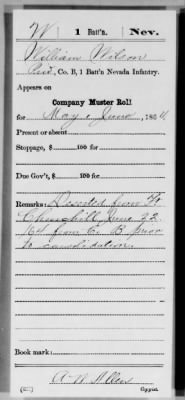 W | 1 Batt'n. | Nev.
William Wilson
Pvt., Co. B, 1 Batt'n Nevada Infantry.
Appears on
Company Muster Roll
for May & June, 1864
Present or absent
Stoppage, $ 100 for
Due Gov't, $ 100 for
Remarks: Deserted from Ft.
Churchill June 22
'64 from Co. B prior
to consolidation.
Book mark:
A W Allen
Copyist.